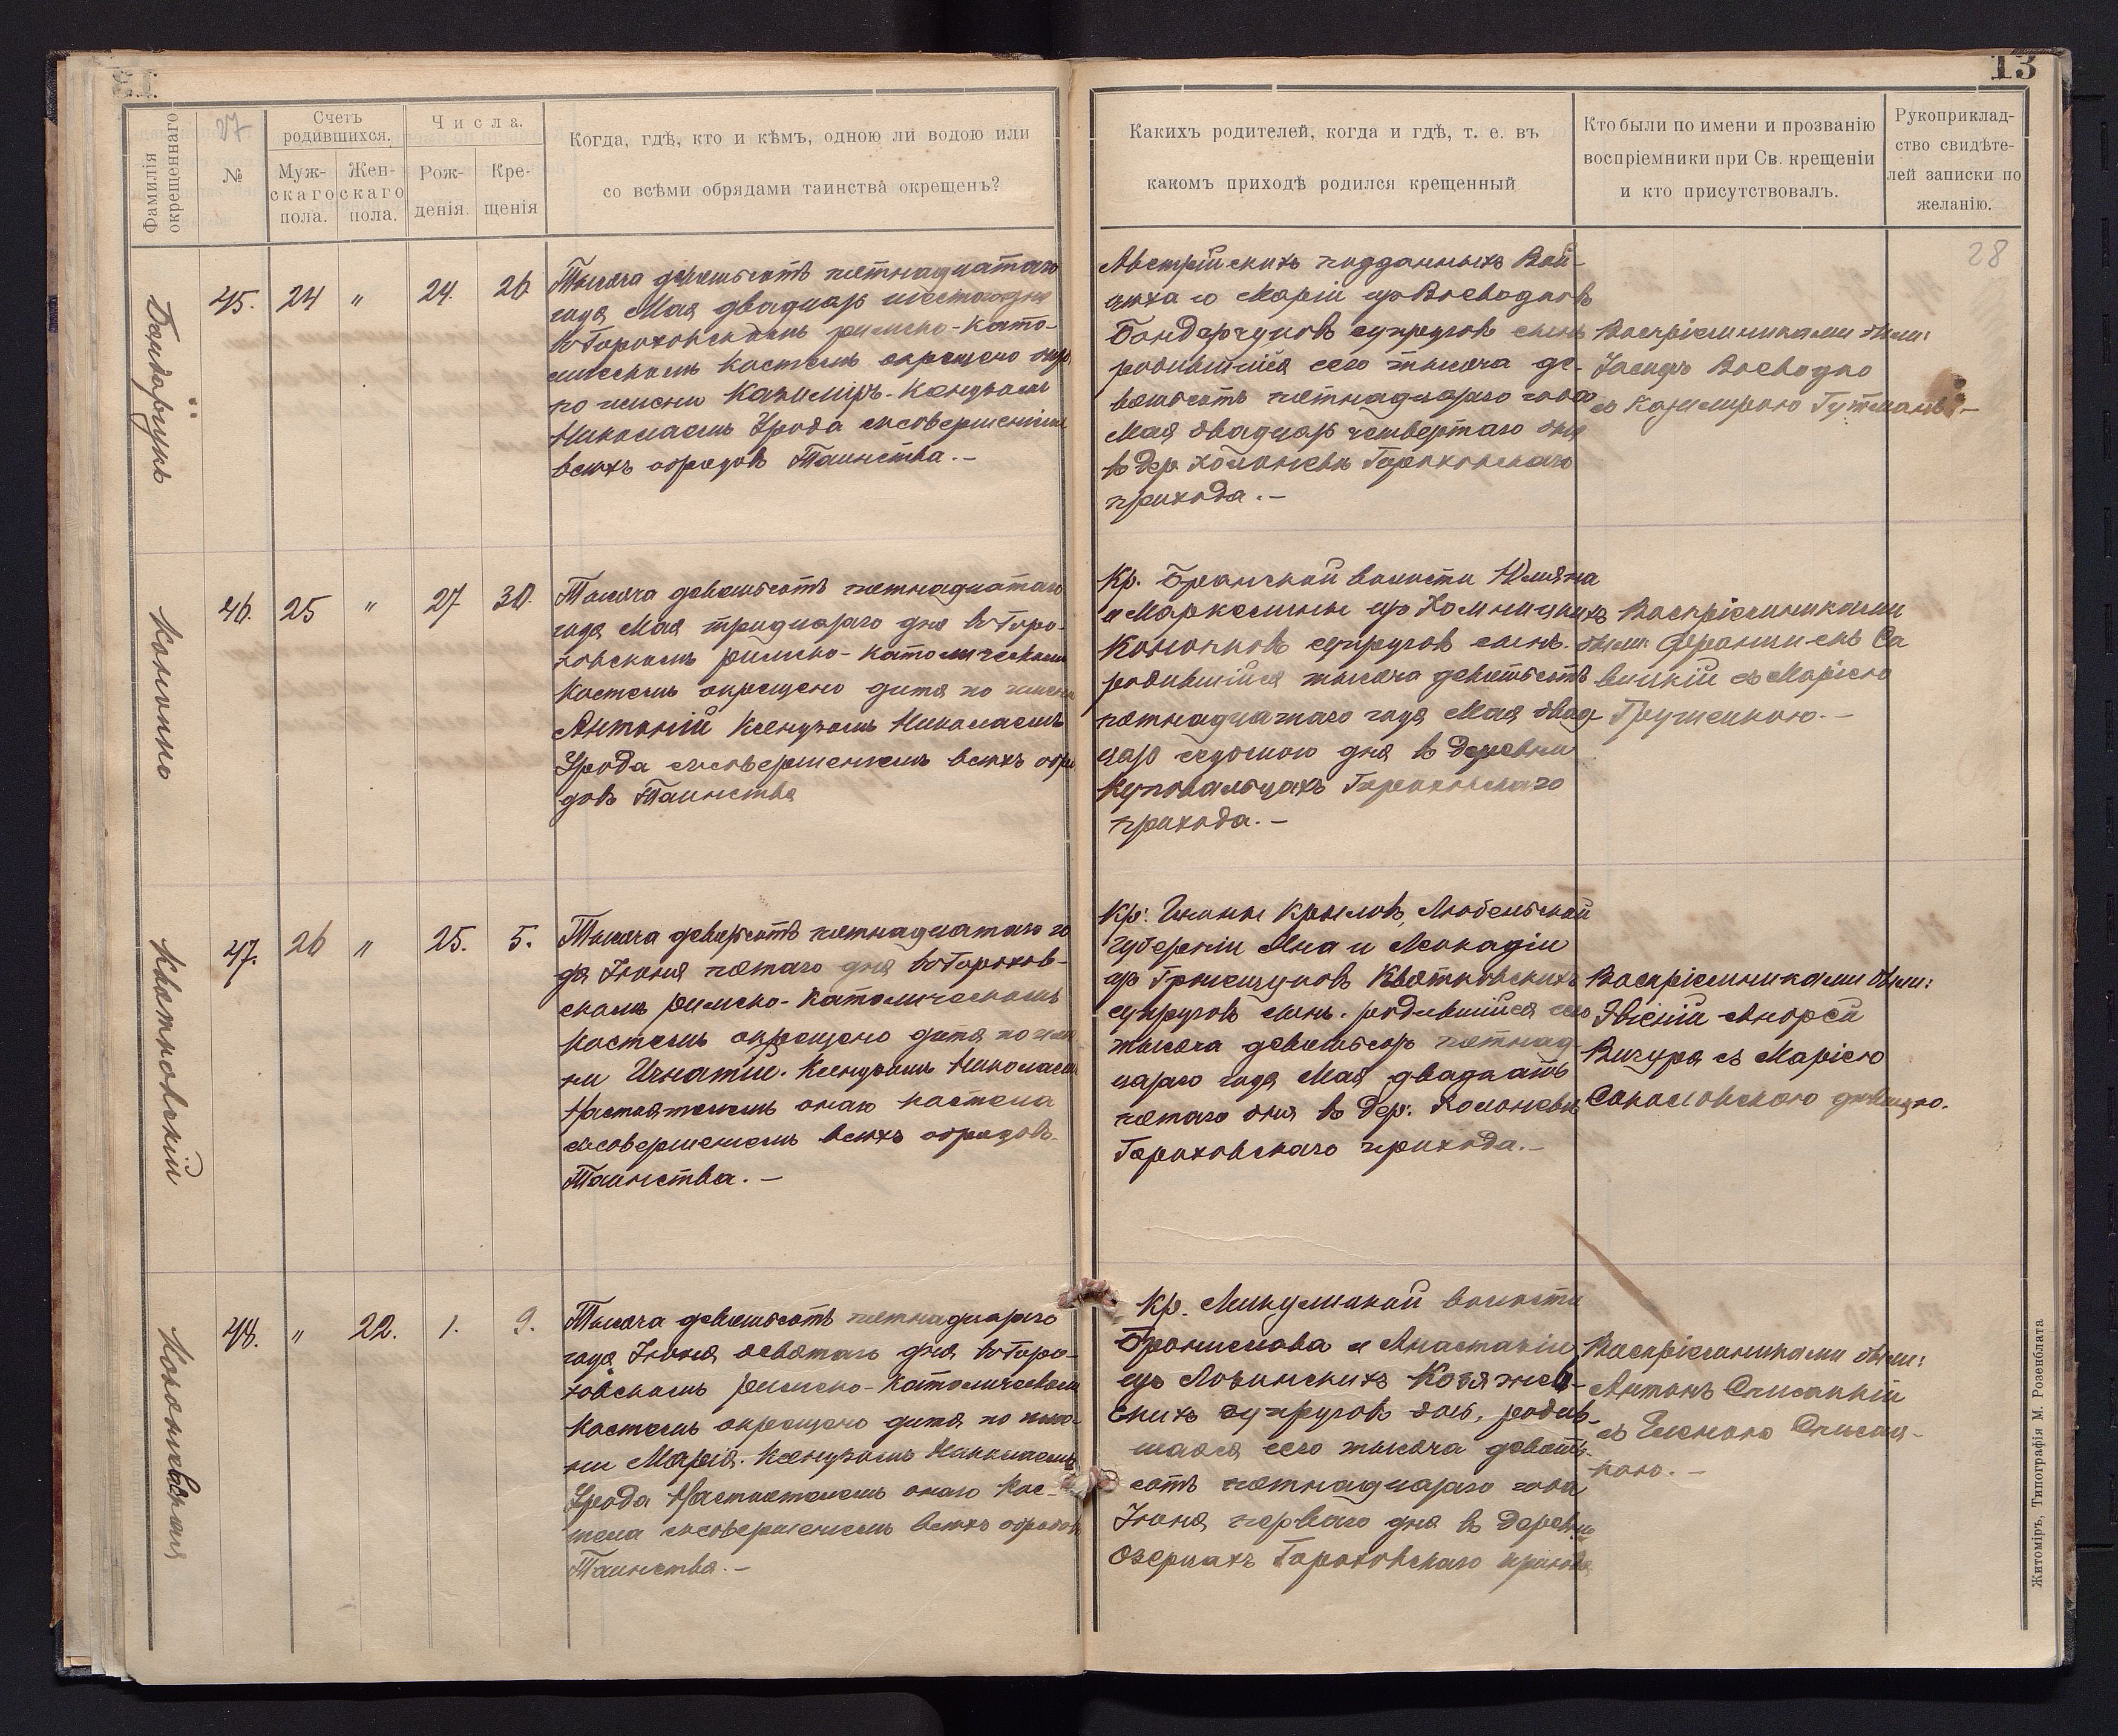 13
27
Фамилія окрещеннаго
№
Счетъ родившихся.
Муж-скаго пола.
Жен-скаго пола.
Числа.
Рож-денія.
Кре-щенія
Когда, гдѣ, кто и кѣмъ, одною ли водою или
со всѣми обрядами таинства окрещенъ?
Бондарчукъ
45. 24 " 24. 26.
Тысяча девятьсотъ пятнадцатаго
года Мая двадцать шестаго дня
въ Гороховскомъ римско-като-
лическомъ костелѣ окрещено дитя
по имени Казиміръ. Ксендзомъ
Николаемъ Урода съ совершеніемъ
всѣхъ обрядовъ Таинства.-
46. 25 " 27 30.
Тысяча девятьсотъ пятнадцатаго
года Мая тридцатаго дня въ Горо-
ховскомъ римско-католическомъ
костелѣ окрещено дитя по имени
Антоній Ксендзомъ Николаемъ
Урода съ совершеніемъ всѣхъ обря
довъ Таинства
Квятковскій
47. 26 " 25. 5.
Тысяча девятьсотъ пятнадцатаго го
да Іюня пятаго дня въ Горохов-
скомъ римско-католическомъ
костелѣ окрещено дитя по име
ни Игнатій. Ксендзомъ Николаемъ
Настоятелемъ онаго костела
съ совершеніемъ всѣхъ обрядовъ
Таинства.-
48. " 22. 1. 9.
Тысяча девятьсотъ пятнадцатаго
года Іюня девятаго дня въ Горо-
ховскомъ римско-католическомъ
костелѣ окрещено дитя по име-
ни Марія. Ксендзомъ Николаемъ
Урода Настоятелемъ онаго кос-
тела съ совершеніемъ всѣхъ обрядовъ
Таинства.-
13
Какихъ родителей, когда и гдѣ, т. е. въ
какомъ приходѣ родился крещенный
Кто были по имени и прозванію
воспріемники при Св. крещеніи
и кто присутствовалъ.
Рукоприклад-
ство свидѣте-
лей записки по
желанію.
28
Австрійскихъ подданныхъ Вой-
цѣха и Маріи изъ
Бондарчуковъ супруговъ сынъ
родившійся сего тысяча де-
вятьсотъ пятнадцатаго года
Мая двадцать четвертаго дня
въ дер. Гороховскаго
прихода.-
Воспріемниками были:
съ Казимирою
Кр. волости
и Маркелины изъ
супруговъ сынъ.
родившійся тысяча девятьсотъ
пятнадцатаго года Мая двад-
цать седьмого дня въ деревни
Гороховскаго
прихода.-
Воспріемниками
были: Францискъ Са
вицкій съ Маріею
Кр: Любельской
губерніи
изъ Квятковскихъ
супруговъ сынъ. родившійся сего
тысяча девятьсотъ пятнад-
цатаго года Мая двадцать
пятаго дня въ дер:
Гороховскаго прихода.-
Воспріемниками были:
Андрей
съ Маріею
Соколовскою дѣвицею.
Кр. волости
Бронислава и Анастасіи
изъ Лозинскихъ
скихъ супруговъ дочь, родив-
шаяся сего тысяча девять-
сотъ пятнадцатаго года
Іюня перваго дня въ деревнѣ
Озерцахъ Гороховскаго прихода
Воспріемниками были:
Антонъ
съ Еленою
кою.-
Житоміръ, Типографія М. Розенблата